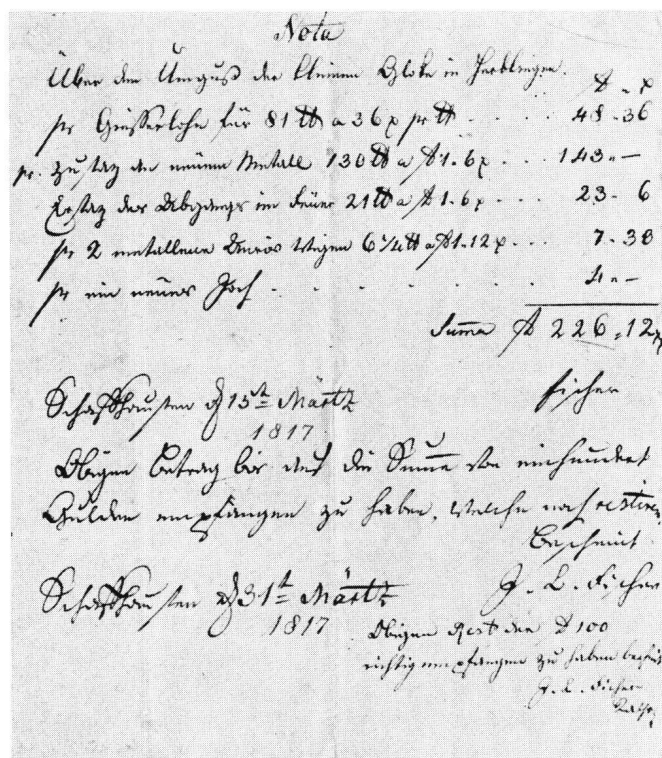 Nota
Über den Umguß der kleinen Gloke in Herblingen.
f - x
pr Giesserlohn für 81 ℔ a 36 x pr ℔ - - - - 48 - 36
pr. Zusaz an neuem Metall 130 ℔ a f 1 - 6 x - - - 143 - -
Ersaz des Abgangs im Feuer 21 ℔ a f 1 - 6 x - - - 23 - 6
pr 2 metallene 6 1/4 ℔ a f 1 - 12 x - - - 7 - 30
pr ein neues Joch - - - - - - - 4 - -
Summa f 226 - 12 x
Schaffhausen d 15t Märtz
1817
Fischer
Obigen Betrag bis auf die Summe von einhundert
Gulden empfangen zu haben, welche noch restiren
Bescheint
Schaffhausen d 31t Märtz
1817
J. C. Fischer
Obigen Rest der f 100
richtig empfangen zu haben
J. C. Fischer